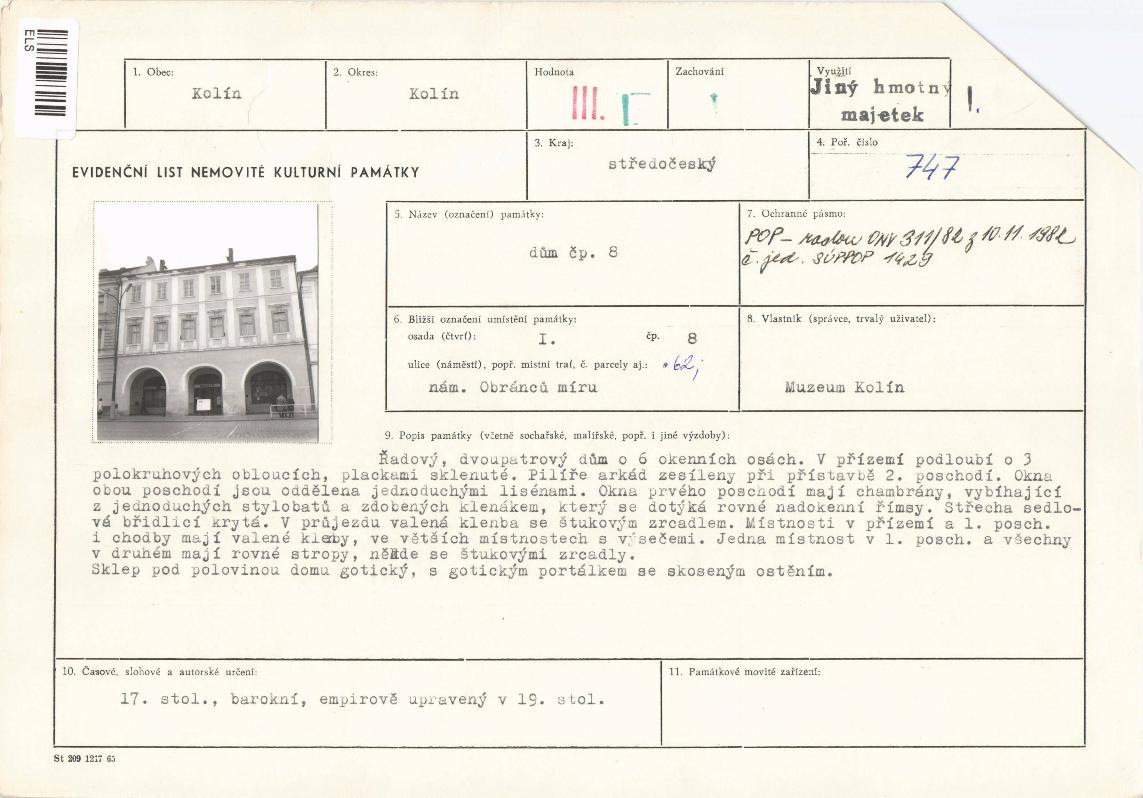 ELS
1. Obec:
Kolín
2. Okres:
Kolín
Hodnota
III. I.
Zachování
Využití
Jiný hmotný
majetek
I.
EVIDENČNÍ LIST NEMOVITÉ KULTURNÍ PAMÁTKY
3. Kraj:
středočeský
4. Poř. číslo
747
5. Název (označení) památky:
dům čp. 8
7. Ochranné pásmo:
POP – radou ONV 311/82 z 10.11.1982
č. jed. SÚPPOP 1429
6. Bližší označení umístění památky:
osada (čtvrť): I. čp. 8
ulice (náměstí), popř. místní trať, č. parcely aj.: 62;
nám. Obránců míru
8. Vlastník (správce, trvalý uživatel):
Muzeum Kolín
9. Popis památky (včetně sochařské, malířské, popř. i jiné výzdoby):
Řadový, dvoupatrový dům o 6 okenních osách. V přízemí podloubí o 3
polokruhových obloucích, plackami sklenuté. Pilíře arkád zesíleny při přístavbě 2. poschodí. Okna
obou poschodí jsou oddělena jednoduchými lisénami. Okna prvého poschodí mají chambrány, vybíhající
z jednoduchých stylobatů a zdobených klenákem, který se dotýká rovné nadokenní římsy. Střecha sedlo-
vá břidlicí krytá. V průjezdu valená klenba se štukovým zrcadlem. Místnosti v přízemí a 1. posch.
i chodby mají valené kleby, ve větších místnostech s výsečemi. Jedna místnost v 1. posch. a všechny
v druhém mají rovné stropy, někde se štukovými zrcadly.
Sklep pod polovinou domu gotický, s gotickým portálkem se skoseným ostěním.
10. Časové, slohové a autorské určení:
17. stol., barokní, empirově upravený v 19. stol.
11. Památkové movité zařízení:
St 209 1217 65